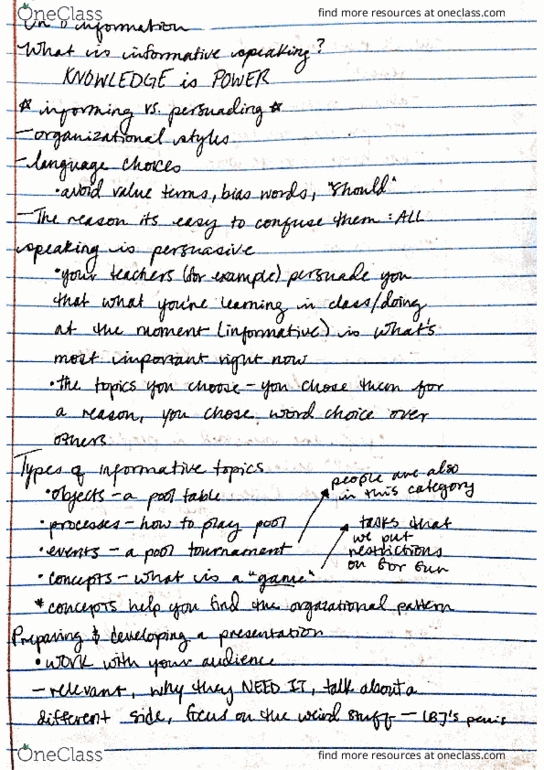 OneClass
find more resources at oneclass.com
information
What is informative speaking?
KNOWLEDGE is POWER
* informing vs. persuading *
- organizational styles
- language choices
• avoid value terms, bias words, "should"
- The reason its easy to confuse them: ALL
speaking is persuasive
• your teachers (for example) persuade you
that what you're learning in class/doing
at the moment (informative) is what's
most important right now
• the topics you choose - you chose them for
a reason, you chose word choice over
others
Types of informative topics
• objects - a pool table
people are also
in this category
• processes - how to play pool
• events - a pool tournament
tasks that
we put
restrictions
on for fun
• concepts - what is a "game"
* concepts help you find the orgazational pattern
Preparing & developing a presentation
• work with your audience
- relevant, why they NEED IT, talk about a
different side, focus on the weird stuff - LBJ's penis
OneClass
find more resources at oneclass.com